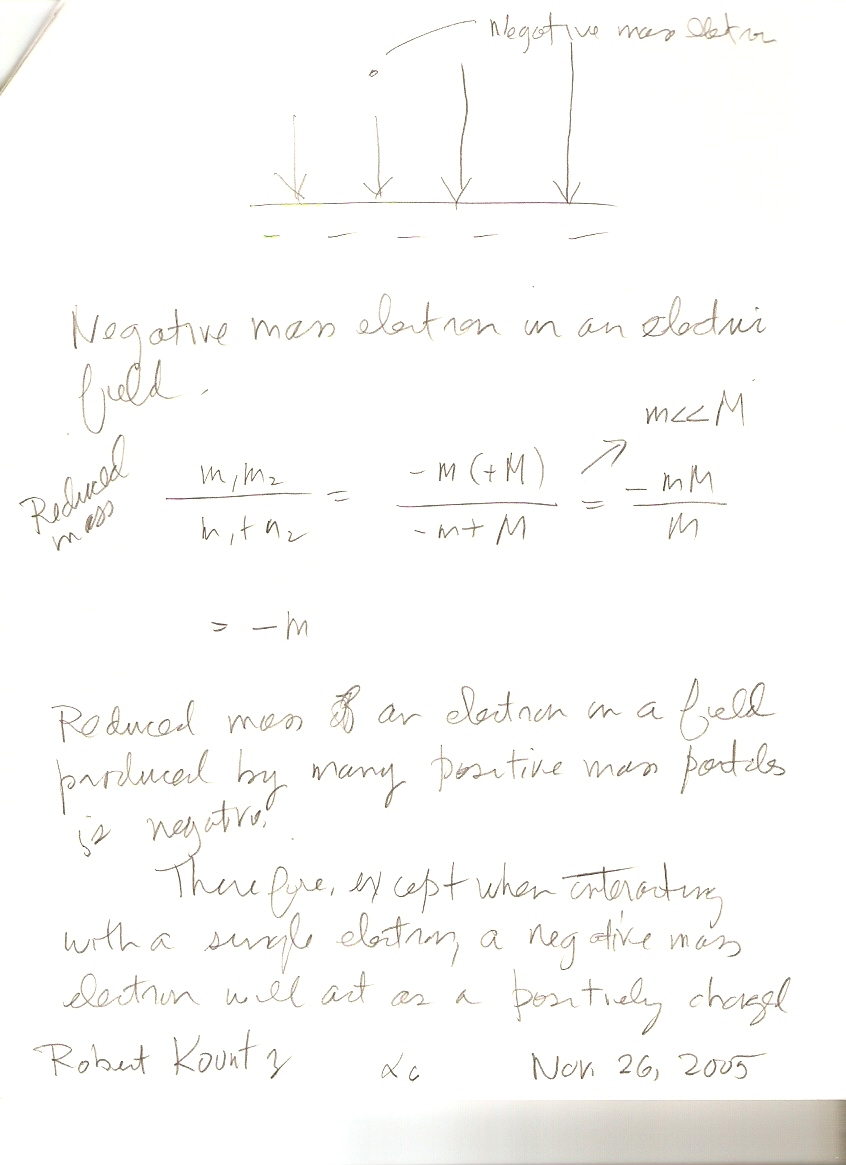 Negative mass eletron
Negative mass electron in an electric
field.
m<<M
Reduced
mass
m₁m₂ / m₁+m₂ = -m(+M) / -m+M = -mM / M
= -m
Reduced mass of an electron in a field
produced by many positive mass particles
is negative.
Therefore, except when interacting
with a single electron, a negative mass
electron will act as a positively charged
Robert Kountz Nov. 26, 2005